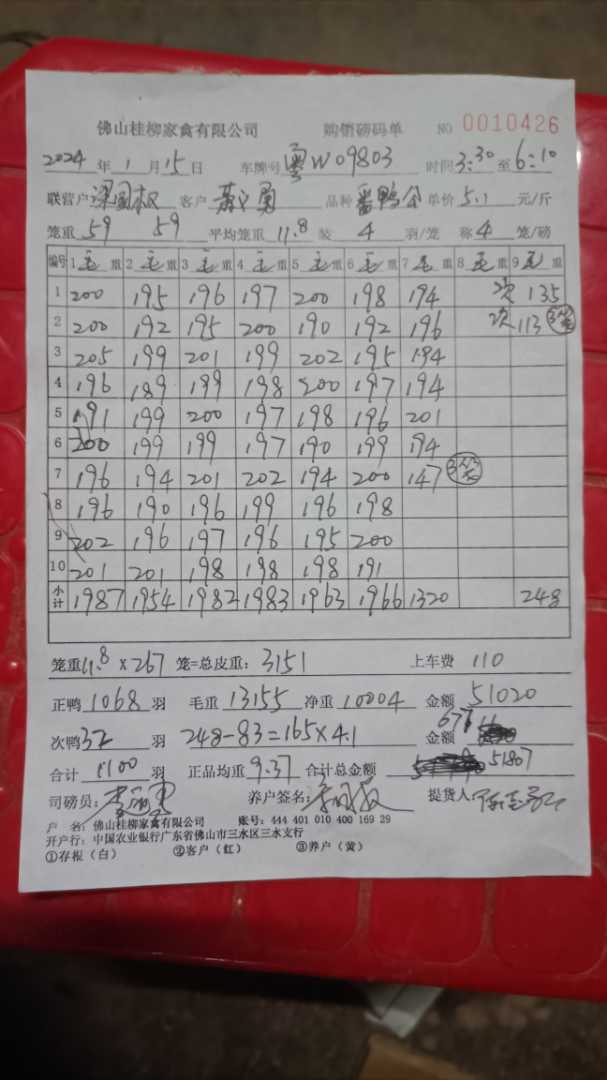 佛山桂柳家禽有限公司 购销磅码单 NO 0010426
2024 年 1 月 15 日 车牌号 粤W09803 时间 3:30 至 6:10
联营户 梁国权 客户 勇 品种 番鸭 单价 5.1 元/斤
笼重 59 59 平均笼重 11.8 装 4 羽/笼 称 4 笼/磅
编号 1 毛 重 2 毛 重 3 毛 重 4 毛 重 5 毛 重 6 毛 重 7 毛 重 8 毛 重 9 毛 重
1 200 195 196 197 200 198 194 次 135
2 200 192 195 200 190 192 196 次 113 3笼
3 205 199 201 199 202 195 194
4 196 189 199 198 200 197 194
5 191 199 200 197 198 196 201
6 200 199 199 197 190 199 194
7 196 194 201 202 194 200 147 3笼
8 196 190 196 199 196 198
9 202 196 197 196 195 200
10 201 201 198 198 198 191
小计 1987 1954 1982 1983 1963 1966 1320 248
笼重 11.8 X 267 笼=总皮重: 3151 上车费 110
正鸭 1068 羽 毛重 13155 净重 10004 金额 51020
次鸭 32 羽 248-83=165×4.1 金额 676
合计 1100 羽 正品均重 9.37 合计总金额 51807
司磅员: 养户签名: 提货人
户 名: 佛山桂柳家禽有限公司 账号: 444 401 010 400 169 29
开户行: 中国农业银行广东省佛山市三水区三水支行
①存根(白) ②客户(红) ③养户(黄)